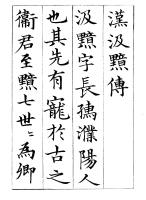 漢汲黯傳
汲黯字長孺濮陽人
也其先有寵於古之
衞君至黯七世〻爲卿